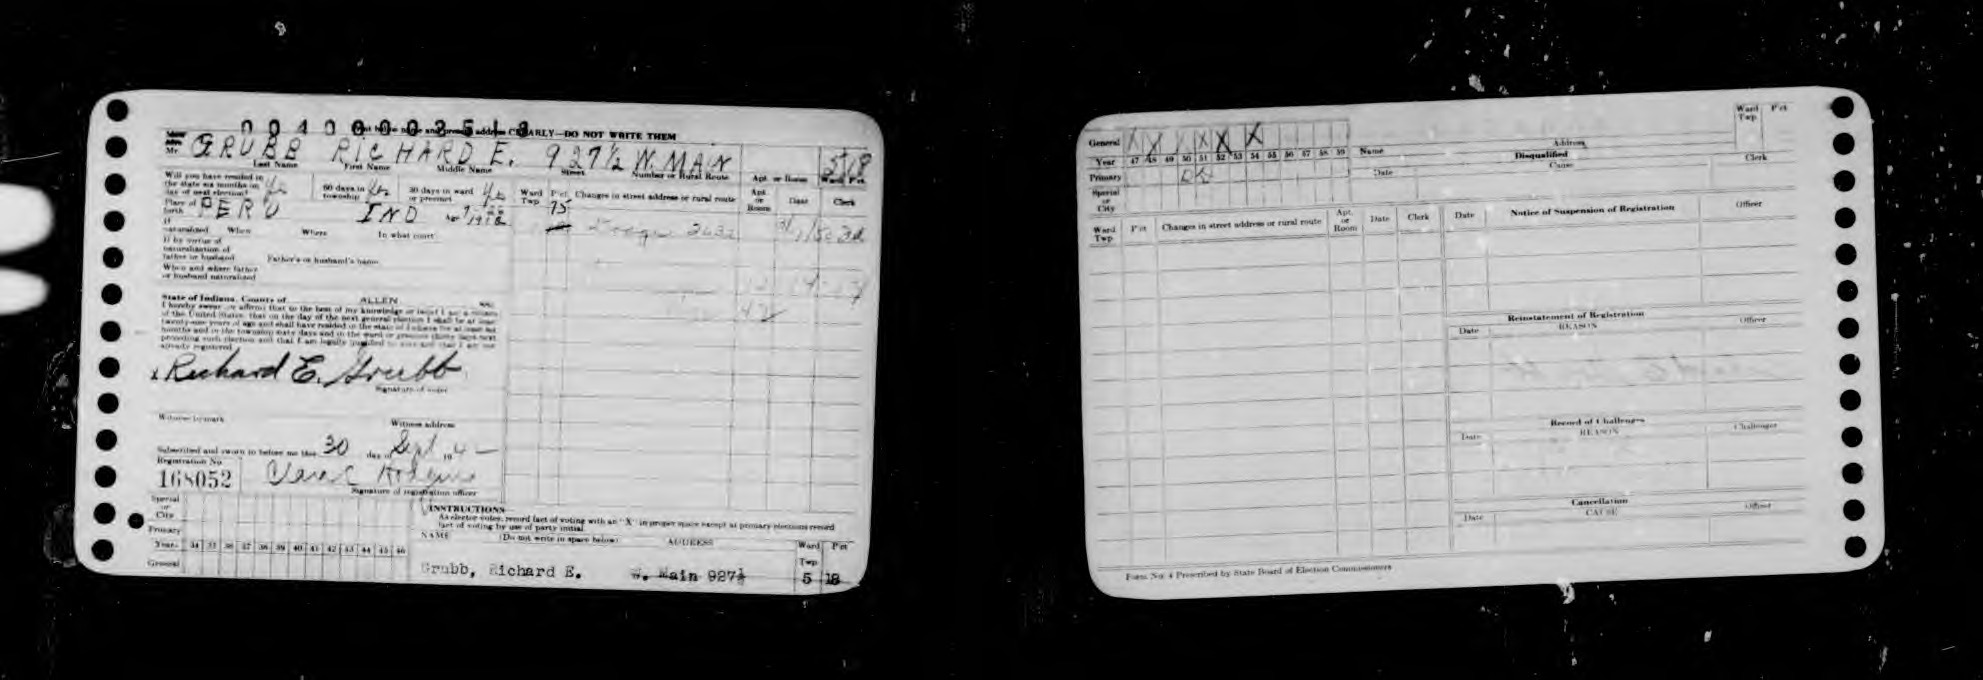 004000003518
Print below name and present address CLEARLY—DO NOT WRITE THEM
Mr. GRUBB RICHARD E. 927½ W. MAIN 5 18
Last Name First Name Middle Name Street Number or Rural Route Apt. or Room Ward Pct.
Will you have resided in
the state six months on
day of next election? Yes 60 days in township Yes 30 days in ward or precinct Yes
Ward Twp Pct. Changes in street address or rural route Apt. or Room Date Clerk
Place of birth PERU IND Age
75
If naturalized When Where In what court
If by virtue of
naturalization of
father or husband Father's or husband's name
When and where father
or husband naturalized
State of Indiana, County of ALLEN ss:
I hereby swear or affirm that to the best of my knowledge or belief I am a citizen
of the United States, that on the day of the next general election I shall be at least
twenty-one years of age and shall have resided in the state of Indiana for at least six
months and in the township sixty days and in the ward or precinct thirty days next
preceding such election and that I am legally qualified to vote and that I am not
already registered.
x Richard E. Grubb
Signature of voter
Witness to mark Witness address
Subscribed and sworn to before me this 30 day of Sept 19 4
Registration No.
168052
Signature of registration officer
Special or City
Primary
Year 34 35 36 37 38 39 40 41 42 43 44 45 46
General
INSTRUCTIONS
As elector votes, record fact of voting with an "X" in proper space except at primary elections record
fact of voting by use of party initial.
NAME (Do not write in space below) ADDRESS Ward Twp Pct
Grubb, Richard E. W. Main 927½ 5 18
General X X X X X X
Year 47 48 49 50 51 52 53 54 55 56 57 58 59
Primary
Special or City
Name Address Ward Twp. Pct
Disqualified
Date Cause Clerk
Ward Twp. Pct Changes in street address or rural route Apt. or Room Date Clerk
Date Notice of Suspension of Registration Officer
Reinstatement of Registration
Date REASON Officer
Record of Challenges
Date REASON Challenger
Cancellation
Date CAUSE Officer
Form No. 4 Prescribed by State Board of Election Commissioners